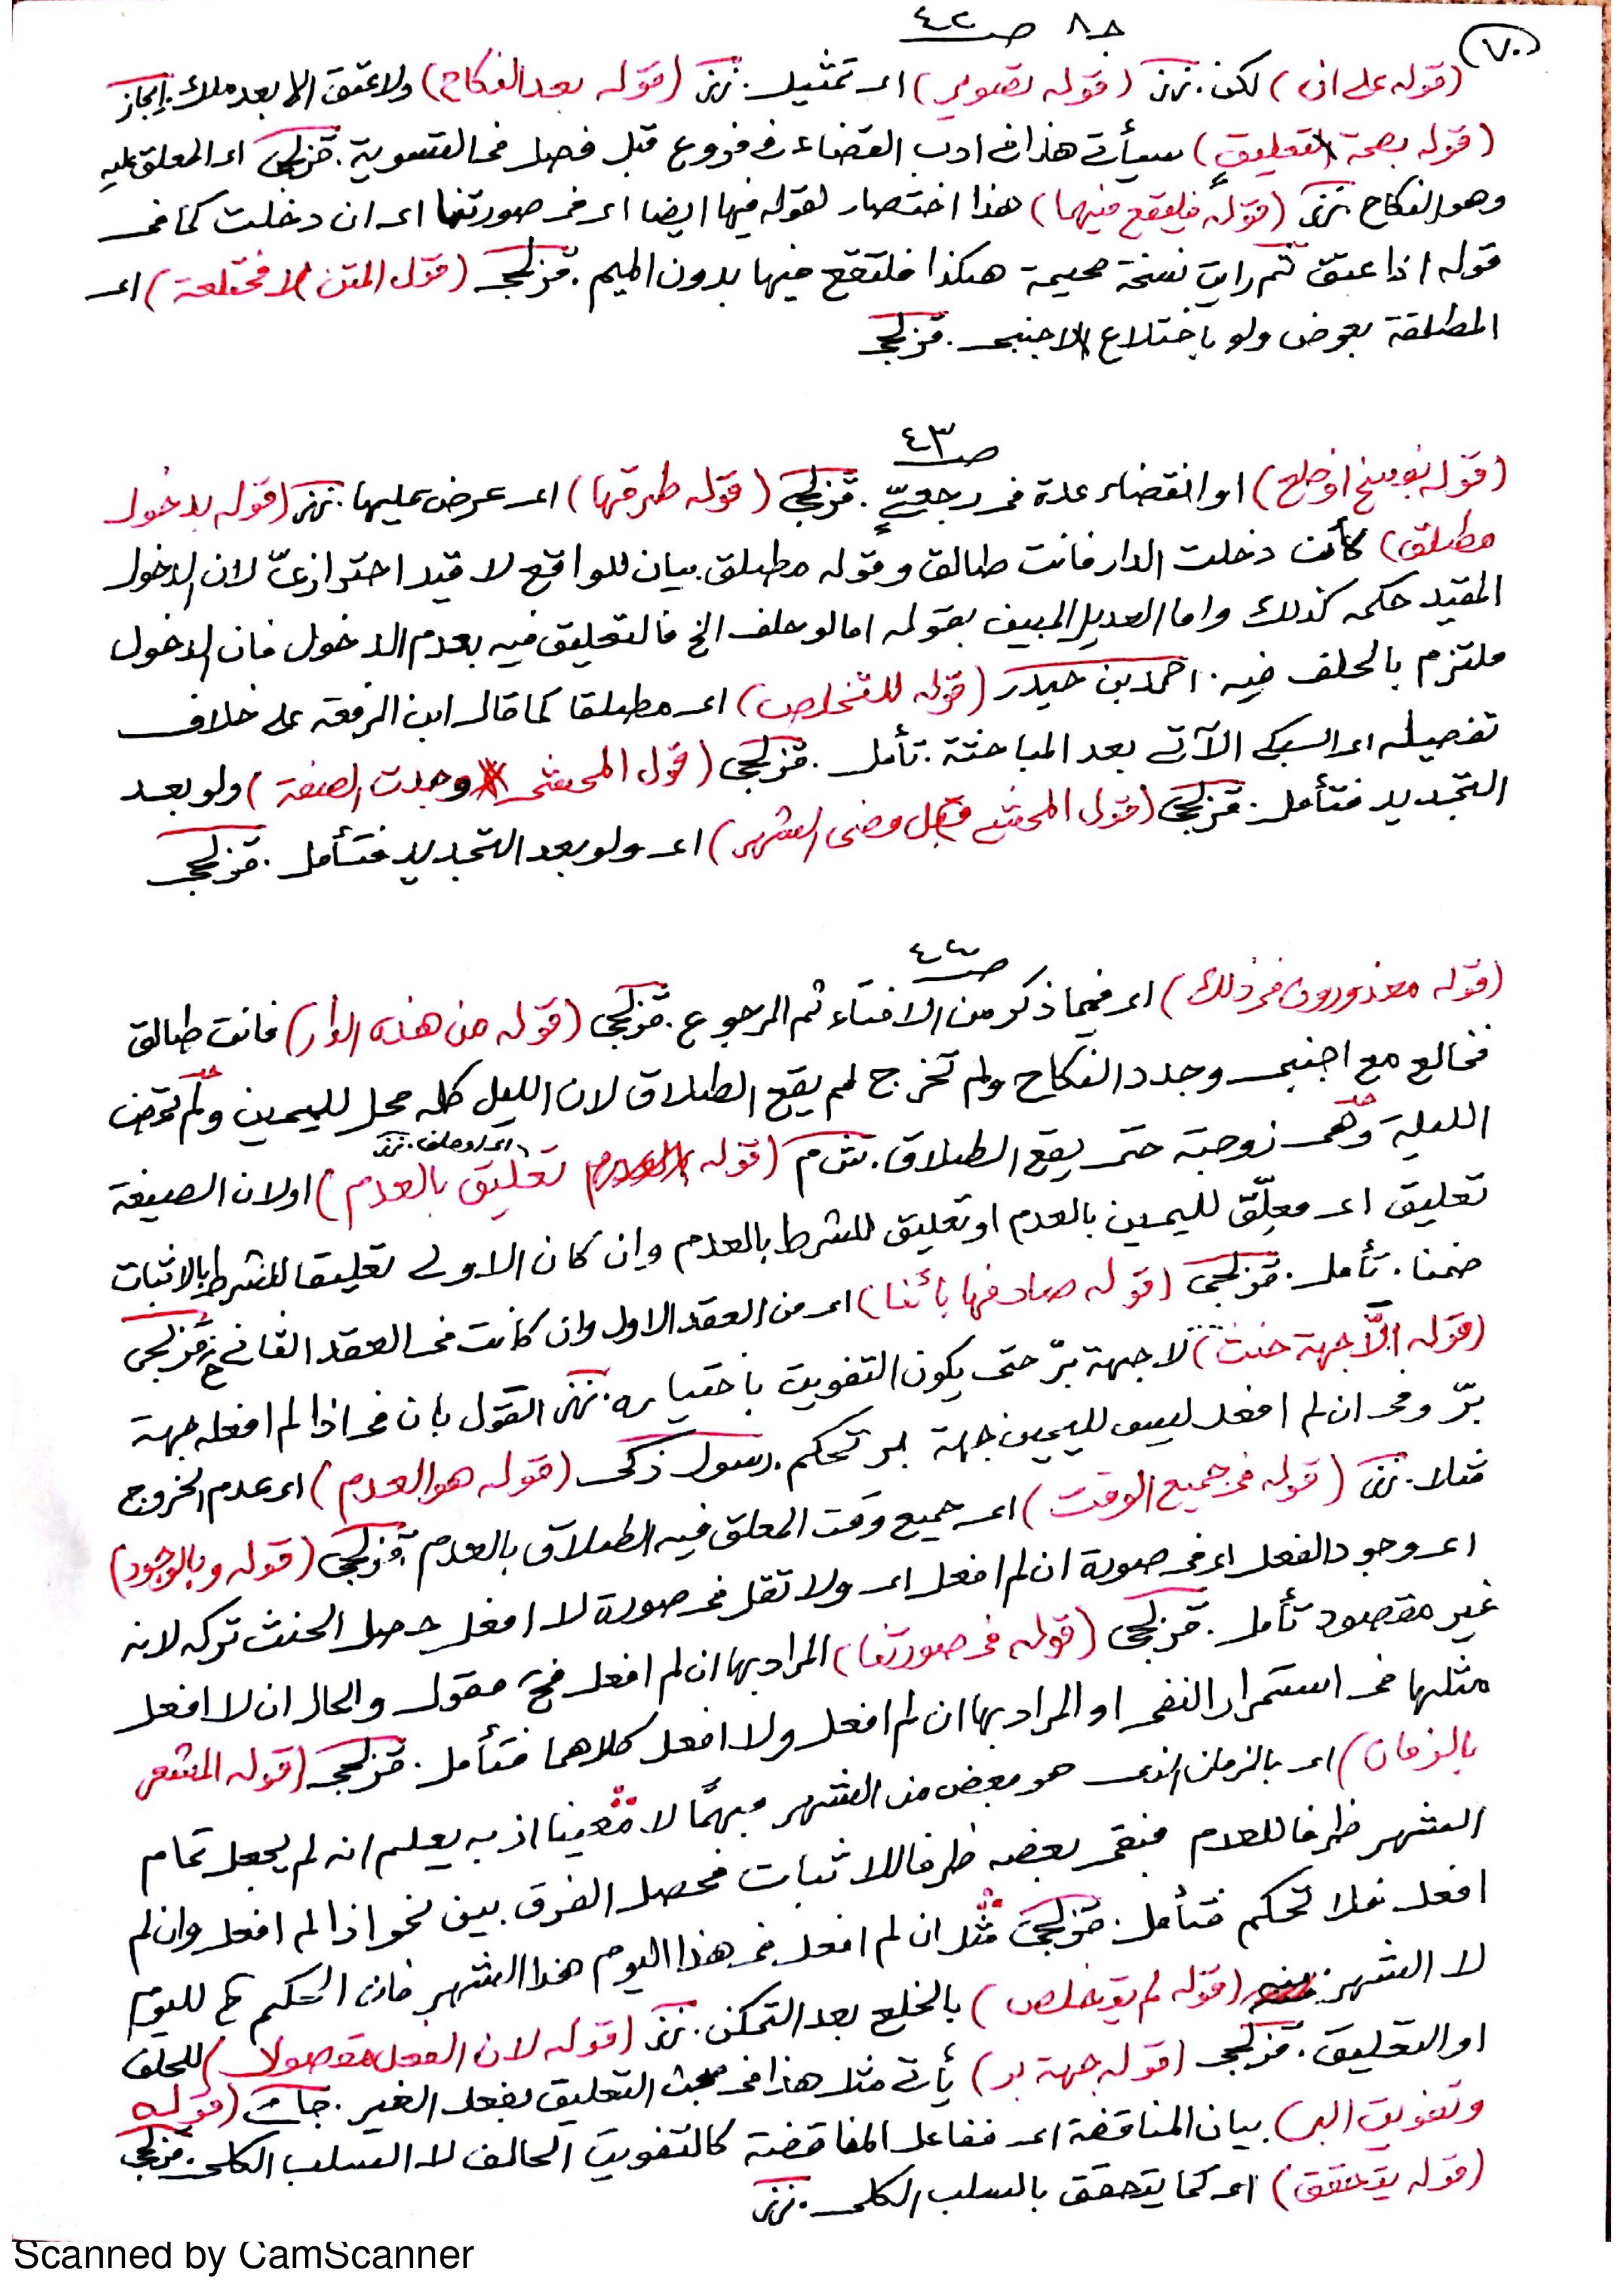 ٧٠
ج٨ ص٤٢
(قوله على ان) لكن. نزز (قوله تصوير) اى تمثيل. نزز (قوله بعد النكاح) ولا عتق الا بعد ملك. إيجاز
(قوله بصحة التعليق) سيأتى هذا فى ادب القضاء فى فروع قبل فصل فى التسوية. قزلجى اى المعلق عليه
وهو النكاح. نزز (قوله فليقع فيهما) هذا اختصار لقوله فيها ايضا اى فى صورتنا اى ان دخلت كما فى
قوله اذا عتق ثم رايت نسخة صحيحة هكذا فلتقع فيها بدون الميم. قزلجى (قول المتن لا مختلعة) اى
المطلقة بعوض ولو باختلاع الاجنبى. قزلجى
ص٤٣
(قوله بفسخ اوضح) او انقضاء عدة فى رجعىٍّ. قزلجى (قوله طرقها) اى عرض عليها. نزز (قوله بدخول
مطلق) كأنت دخلت الدار فانت طالق وقوله مطلق. بيان للواقع لا قيد احترازىّ لان الدخول
المقيد حكمه كذلك واما العديل المبين بقوله اما لو حلف الخ فالتعليق فيه بعدم الدخول فان الدخول
ملتزم بالحلف فيه. احمد بن حيدر (قوله للتخلص) اى مطلقا كما قال ابن الرفعة على خلاف
تفصيله اى السبكى الآتى بعد المباحثة. تأمل. قزلجى (قول المحشى وجدت الصفة) ولو بعد
التجديد فتأمل. قزلجى (قول المحشى قبل مضى الشهر) اى ولو بعد التجديد فتأمل. قزلجى
ص٤٤
(قوله معذورون فى ذلك) اى فيما ذكر من الافتاء ثم الرجوع. قزلجى (قوله من هذه الدار) فانت طالق
فخالع مع اجنبى وجدد النكاح ولم تخرج لم يقع الطلاق لان الليل كله محل لليمين ولم تمض
الليلة وهى زوجية حتى يقع الطلاق. (قوله تعليق بالعدم) او لان الصيغة
تعليق اى معلّق لليمين بالعدم او تعليق للشرط بالعدم وان كان الاولى تعليقا للشرط بالاثبات
ضمنا. تأمل. قزلجى (قوله صادفها بائنا) اى من العقد الاول وان كانت فى العقد الثانى ح. قزلجى
(قوله الّا جهة حنث) لا جهة برّ حتى يكون التفويت باختياره. نزز القول بان فى اذا لم افعله جهة
برّ وفى ان لم افعل ليس لليمين جهة بر تحكم. رسول زكى (قوله هو العدم) اى عدم الخروج
مثلا. نزز (قوله فى جميع الوقت) اى جميع وقت المعلق فيه الطلاق بالعدم. قزلجى (قوله وبالوجود)
اى وجود الفعل اى فى صورة ان لم افعل اى ولا تقل فى صورة لا افعل حصل الحنث تركه لانه
غير مقصود تأمل. قزلجى (قوله فى صورتنا) المراد بها ان لم افعل فح مقول والحال ان لا افعل
مثلها فى استمرار النفى او المراد بها ان لم افعل ولا افعل كلاهما فتأمل. قزلجى (قوله المشعر
بالزمان) اى بالزمان الذى هو بعض من الشهر مبهمًا لا معينا اذ به يعلم انه لم يجعل تمام
الشهر ظرفا للعدم فبقى بعضه ظرفا للاثبات فحصل الفرق بين نحو اذا لم افعل وان لم
افعل فلا تحكم فتأمل. قزلجى مثل ان لم افعل فى هذا اليوم هذا الشهر فان الحكم ح لليوم
لا الشهر. (قوله لم يتخلص) بالخلع بعد التمكن. نزز (قوله لان الفعل مقصولا) للحلف
او التعليق. قزلجى (قوله جهة بر) يأتى مثل هذا فى مبحث التعليق بفعل الغير. (قوله
وتفويت البر) بيان المناقضة اى ففاعل المناقضة كالتفويت الحالف لا السلب الكلى. قزلجى
(قوله يتحقق) اى كما يتحقق بالسلب الكلى. نزز
Scanned by CamScanner